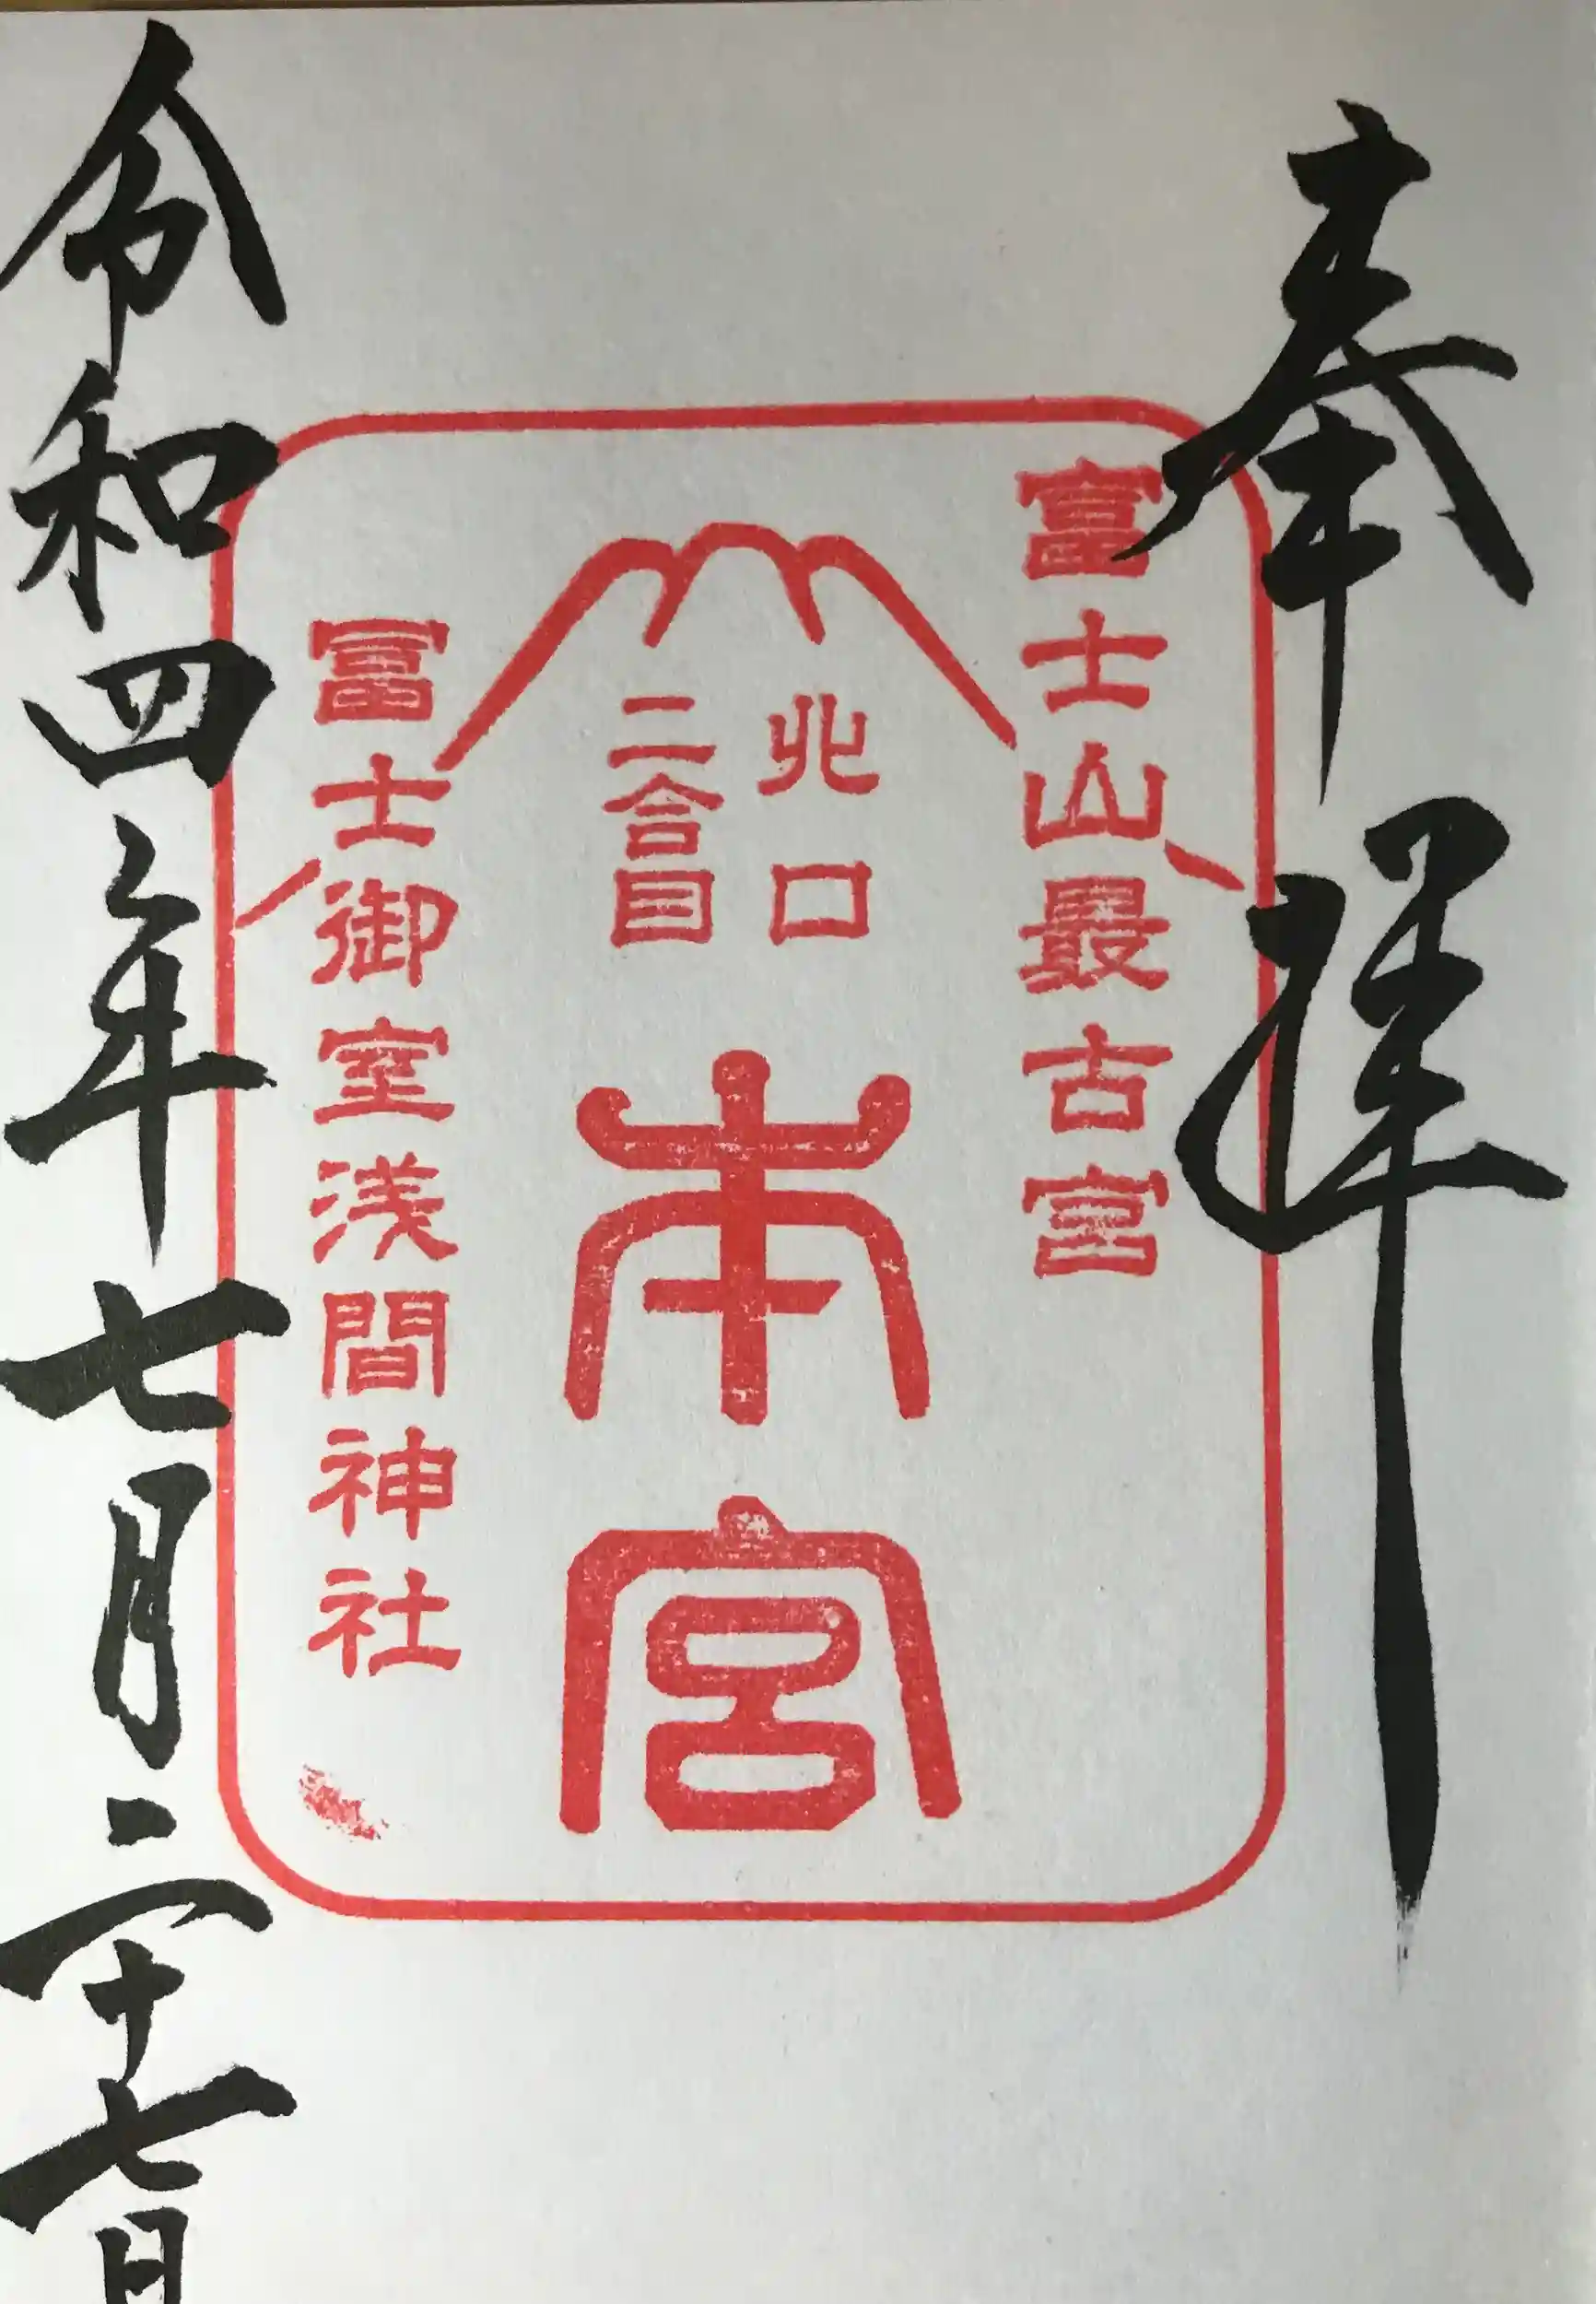 奉拝
富士山最古宮
北口
二合目
本宮
冨士御室浅間神社
令和四年七月二十七日